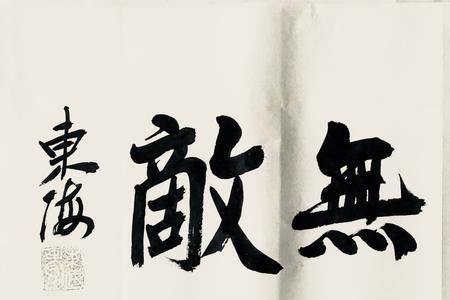 無敵
東海